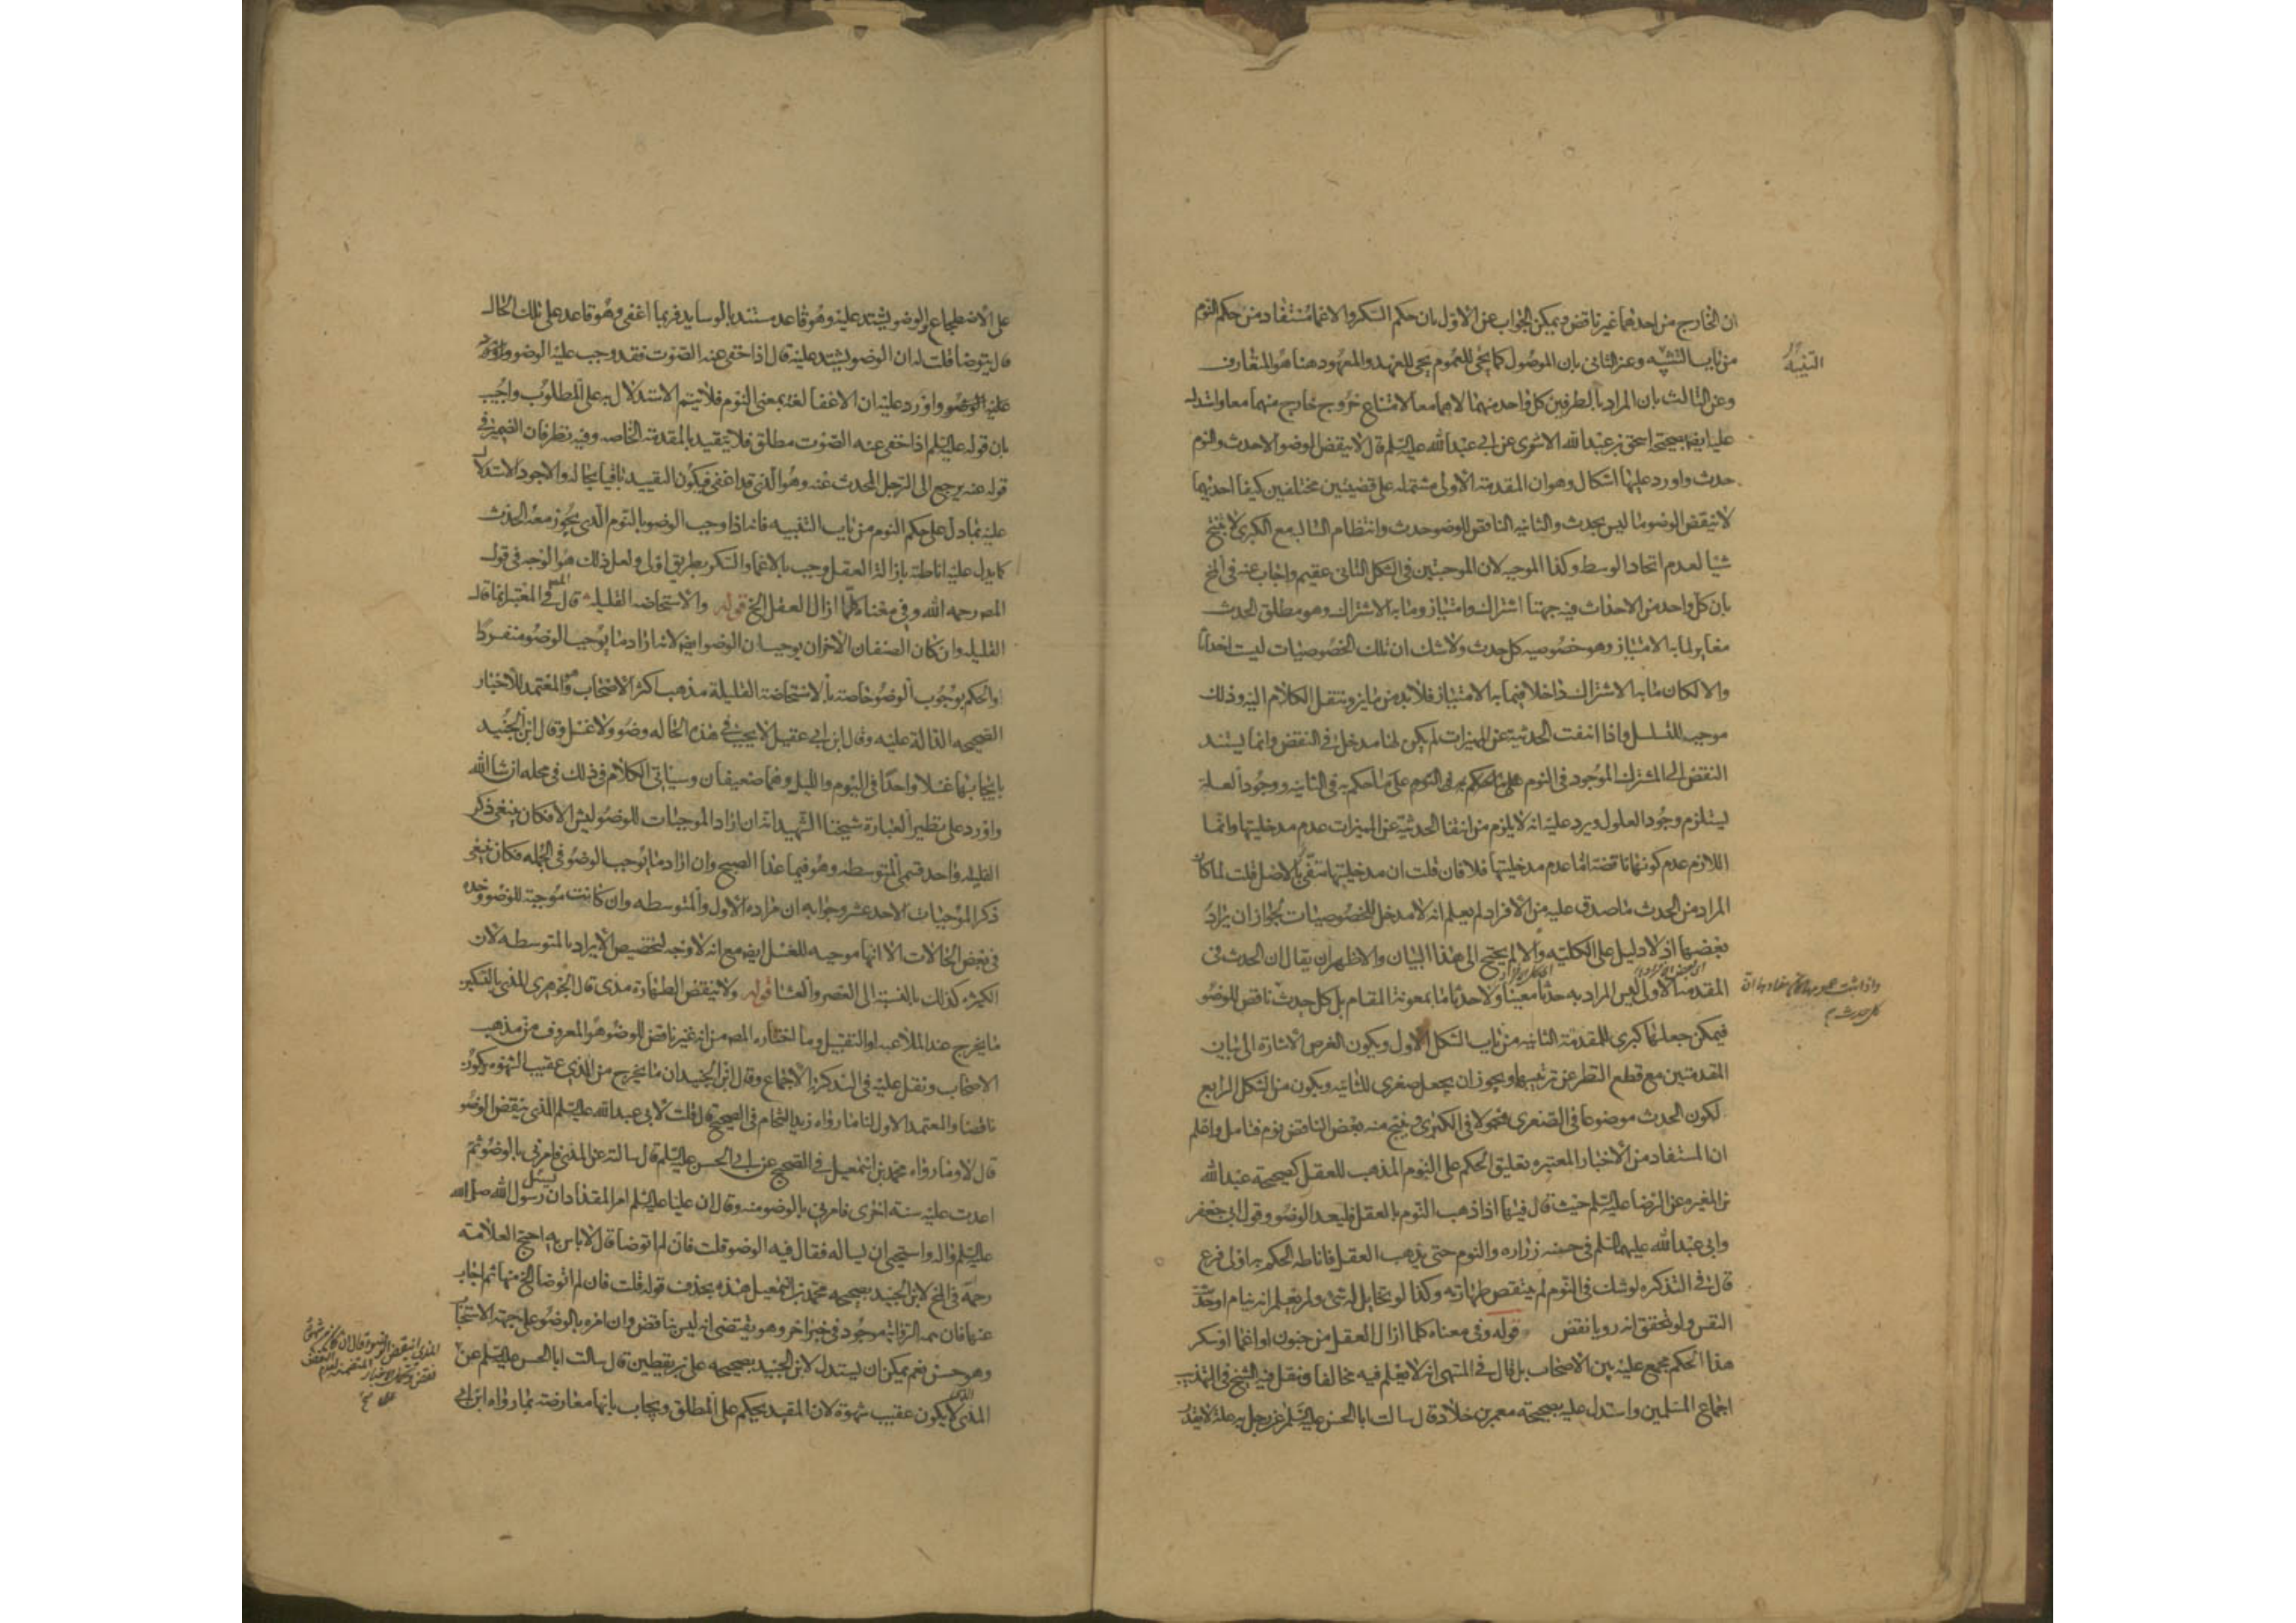 ان الخارج من احدهما غير ناقض ويمكن الجواب عن الاول بان حكم السكر والاغما مستفاد من حكم النوم
من باب التنبيه وعن الثانى بان الموصول كما يجى للعموم يجى للعهد والمعهود هنا هو المتعارف
التنبيه
وعن الثالث بان المراد بالطرفين كل واحد منهما لا هما معا لامتناع خروج خارج منهما معا واستدل
عليه ايضا بصحيحة اسحق بن عبد الله الاشعرى عن ابى عبد الله عليه السلم قال لا ينقض الوضو الا حدث والنوم
حدث واورد عليها اشكال وهو ان المقدمة الاولى مشتمله على قضيتين مختلفتين كيفا احديهما
لا ينقض الوضو ما ليس بحدث والثانيه الناقض للوضو حدث وانتظام السالبه مع الكبرى لا ينتج
شيا لعدم اتحاد الوسط وكذا الموجبه لان الموجبتين فى الشكل الثانى عقيم واجاب عنه فى المخ
بان كل واحد من الاحداث فيه جهتا اشتراك وامتياز وما به الاشتراك وهو مطلق الحدث
مغاير لما به الامتياز وهو خصوصيه كل حدث ولا شك ان تلك الخصوصيات ليست احداثا
والا لكان ما به الاشتراك داخلا فيما به الامتياز فلا بد من مايز وينتقل الكلام اليه وذلك
موجب للتسلسل واذا انتفت الحدثيه عن المميزات لم يكن لها مدخل فى النقض وانما يستند
النقض الى المشترك الموجود فى النوم على ما حكم به فى الثانيه ووجود العلة
يستلزم وجود المعلول ويرد عليه انه لا يلزم من انتفا الحدثية عن المميزات عدم مدخليتها وانما
اللازم عدم كونها ناقضة اما عدم مدخليتها فلا فان قلت ان مدخليتها منفى بالاصل قلت لما كان
المراد من الحدث ما صدق عليه من الافراد لم يعلم انه لا مدخل للخصوصيات لجواز ان يراد
بعضها اذ لا دليل على الكليه والا لم يحتج الى هذا البيان والاظهر ان يقال ان الحدث فى
المقدمة الاولى ليس المراد به حدثا معينا ولا حدثا ما بمعونة المقام بل كل حدث ناقض للوضو
فيمكن جعلها كبرى للمقدمة الثانيه من باب الشكل الاول ويكون الغرض الاشارة الى بيان
المقدمتين مع قطع النظر عن ترتيبهما ويجوز ان يجعل صغرى للثانيه ويكون من الشكل الرابع
لكون الحدث موضوعا فى الصغرى محمولا فى الكبرى فينتج منه بعض الناقض نوم فتامل واعلم
ان المستفاد من الاخبار المعتبره تعليق الحكم على النوم المذهب للعقل كصحيحة عبد الله
بن المغيره عن الرضا عليه السلم حيث قال فيها اذا ذهب النوم بالعقل فليعد الوضو وقول ابى جعفر
وابى عبد الله عليهما السلم فى حسنه زراره والنوم حتى يذهب العقل فاناطه الحكم به اولى فرع
قال فى التذكره لو شك فى النوم لم ينقص طهارته وكذا لو تخايل له شى ولم يعلم انه منام او حديث
النفس ولو تحقق انه رويا نقض قوله وفى معناه كلما ازال العقل من جنون او اغما او سكر
هذا الحكم مجمع عليه بين الاصحاب بل قال فى المنتهى انه لا يعلم فيه مخالفا ونقل فيه الشيخ فى التهذيب
اجماع المسلمين واستدل عليه بصحيحة معمر بن خلاد قال سالت ابا الحسن عليه السلم عن رجل به علة لا يقدر
على الاضطجاع والوضو يشتد عليه وهو قاعد مستند بالوسايد فربما اغفى وهو قاعد على تلك الحال
قال يتوضا قلت له ان الوضو يشتد عليه قال اذا خفى عنه الصوت فقد وجب عليه الوضو
عليه الوضو واورد عليه ان الاغفا لغة بمعنى النوم فلا يتم الاستدلال به على المطلوب واجيب
بان قوله عليه السلم اذا خفى عنه الصوت مطلق فلا يتقيد بالمقدمة الخاصه وفيه نظر فان الضمير فى
قوله عنه يرجع الى الرجل المحدث عنه وهو الذى قد اغفى فيكون التقييد باقيا بحاله والاجود الاستدلال
عليه بما دل على حكم النوم من باب التنبيه فانه اذا وجب الوضو بالنوم الذى يجوز معه الحدث
كما يدل عليه اناطته بازالة العقل وجب بالاغما والسكر بطريق اولى ولعل ذلك هو الوجه فى قول
المصه رحمه الله وفى معناه كلما ازال العقل الخ قوله والاستحاضه القليله قال المصه فى المعتبر انما قال
القليله وان كان الصنفان الاخران يوجبان الوضو ايضا لانه اراد ما يوجب الوضو منفردا
والحكم بوجوب الوضو خاصة بالاستحاضة القليلة مذهب اكثر الاصحاب وهو المعتمد للاخبار
الصحيحه الدالة عليه وقال ابن ابى عقيل لا يجب فى هذه الحاله وضو ولا غسل وقال ابن الجنيد
بايجابها غسلا واحدا فى اليوم والليل وهما ضعيفان وسياتى الكلام فى ذلك فى محله ان شا الله
واورد على نظير العبارة شيخنا الشهيد انه ان اراد الموجبات للوضو ليس الا فكان ينبغى ذكر
القليله واحد قسمى المتوسطه وهو فيما عدا الصبح وان اراد ما يوجب الوضو فى الجمله فكان ينبغى
ذكر الموجبات الاحد عشر وجوابه ان مراده الاول والمتوسطه وان كانت موجبة للوضو وحده
فى بعض الحالات الا انها موجبه للغسل ايضا مع انه لا وجه لتخصيص الايراد بالمتوسطه لان
الكثيره كذلك بالنسبة الى العصر والعشا قوله ولا ينقض الطهارة مذى قال الجوهرى المذى بالتسكين
ما يخرج عند الملاعبه او التقبيل وما اختاره المصه من انه غير ناقض للوضو هو المعروف من مذهب
الاصحاب ونقل عليه فى التذكرة الاجماع وقال ابن الجنيد ان ما يخرج من المذى عقيب الشهوه يكون
ناقضا والمعتمد الاول لنا ما رواه زيد الشحام فى الصحيح قال قلت لابى عبد الله عليه السلم المذى ينقض الوضو
قال لا وما رواه محمد بن اسمعيل فى الصحيح عن ابى الحسن عليه السلم قال سالته عن المذى فامرنى بالوضو ثم
اعدت عليه سنة اخرى فامرنى بالوضو منه وقال ان عليا عليه السلم امر المقداد ان يسئل رسول الله صلى الله
عليه واله واستحيى ان يساله فقال فيه الوضو قلت فان لم اتوضا قال لا باس به احتج العلامة
رحمه فى المخ لابن الجنيد بصحيحه محمد بن اسمعيل هذه بحذف قوله قلت فان لم اتوضا الخ منها ثم اجاب
عنها فان هذه الرواية موجود فى خبر اخر وهو يقتضى انه ليس بناقض وان امره بالوضو على جهة الاستحباب
وهو حسن نعم يمكن ان يستدل لابن الجنيد بصحيحه على بن يقطين قال سالت ابا الحسن عليه السلم عن
المذى
المذى يكون عقيب شهوة لان المقيد يحكم على المطلق ويجاب بانها معارضة بما رواه ابن ابى